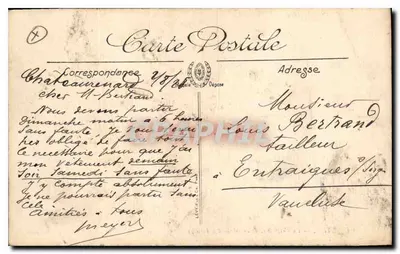 Carte Postale
Correspondance
Adresse
Chateaurenard 2/8/
cher M. Bertrand
Nous devons partir
Dimanche matin a 6 heures
Sans faute. Je
obligé de
le necessaire pour que j'ai
mon vetement demain
Soir Samedi sans faute
J'y compte absolument
Je ne pourrais partir sans
Cela
Amitiés a tous
Meyer
Monsieur
Louis Bertrand
tailleur
Entraigues s/Sorgue
Vaucluse